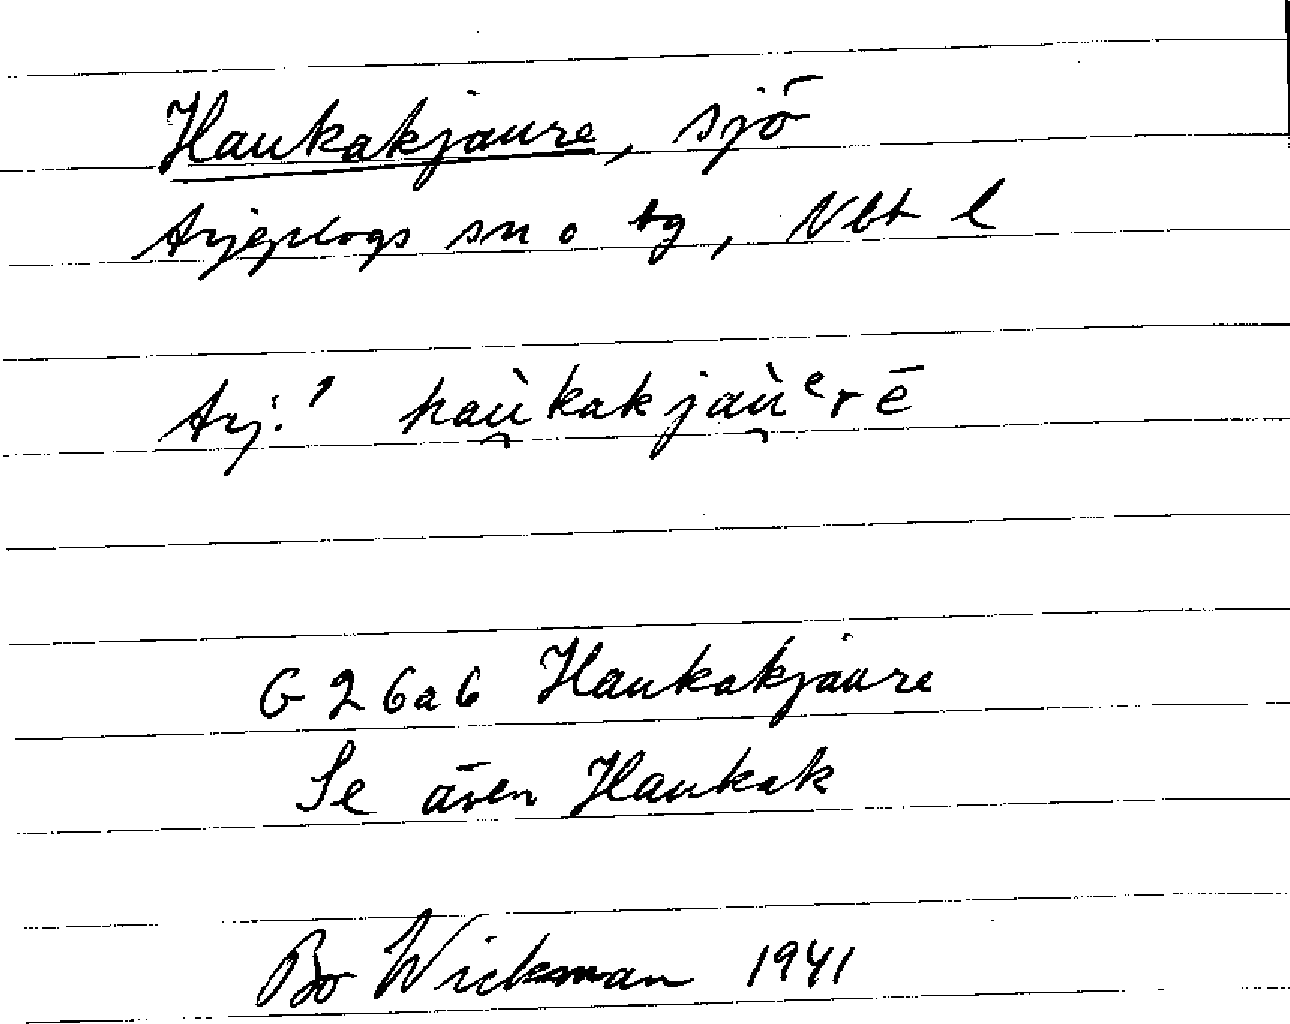 Haukakjaure, sjö
Arjeplogs sn o tg, Vbt l
Arj.' haù̯kakjaù̯ᵉrē
G 26a6 Haukakjaure
Se även Haukak
Bo Wickman 1941